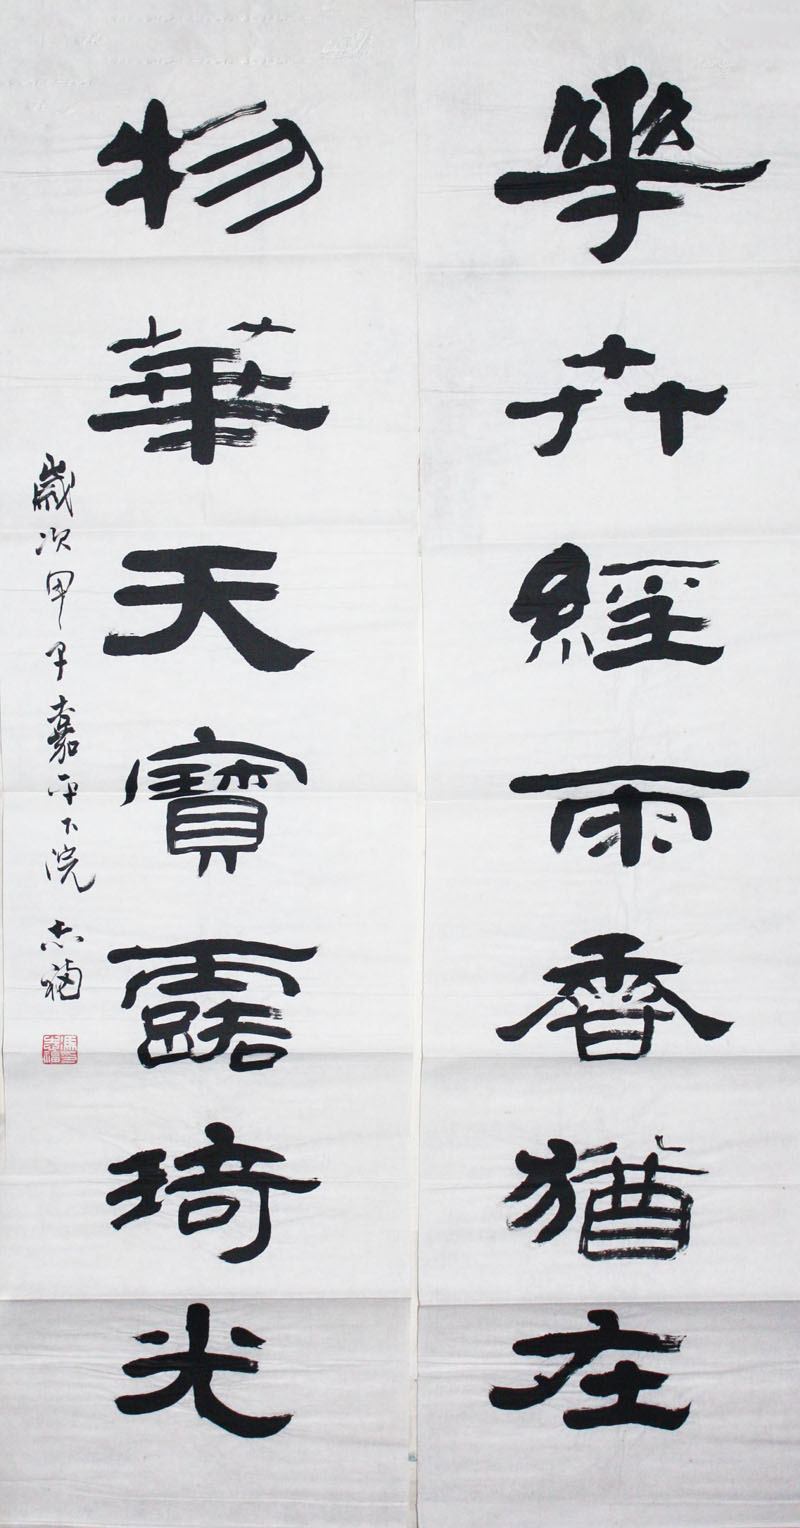 𠌶卉經雨香猶在
物華天寶露琦光
歲次甲子嘉平下浣 志福